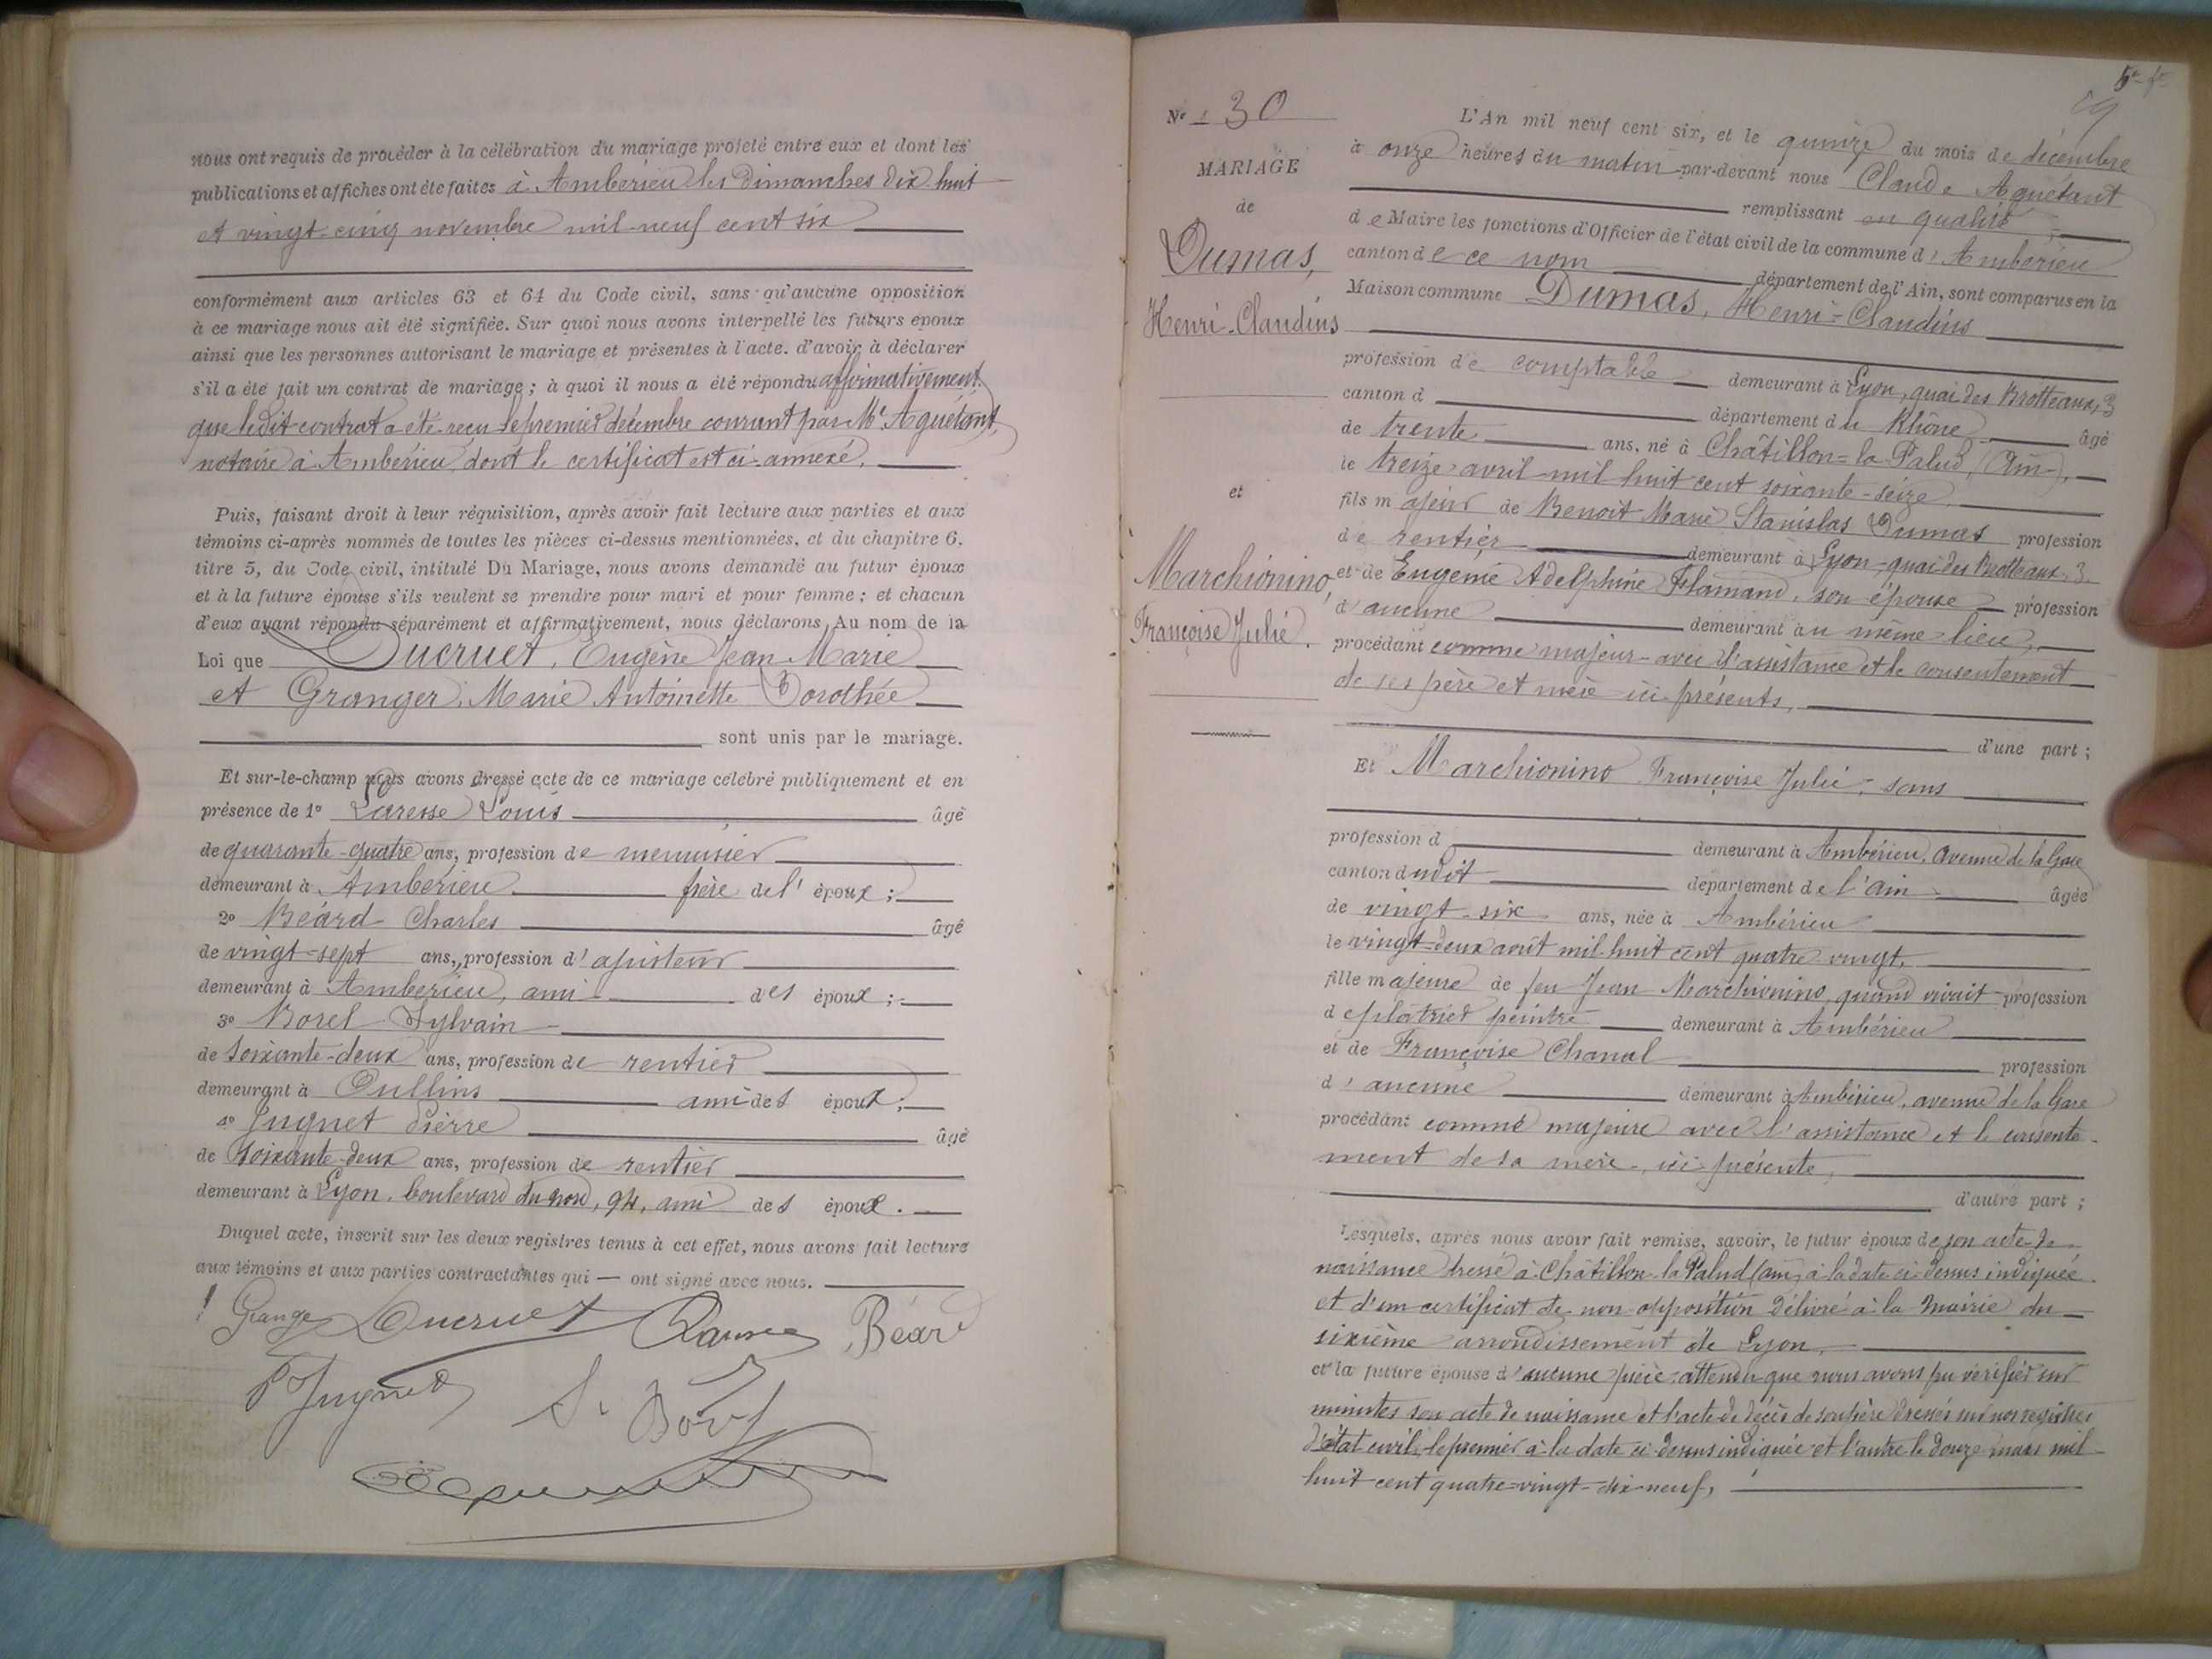 nous ont requis de procéder à la célébration du mariage projeté entre eux et dont les
publications et affiches ont été faites à Ambérieu les Dimanches dix huit
et vingt-cinq novembre mil-neuf cent six
conformément aux articles 63 et 64 du Code civil, sans qu'aucune opposition
à ce mariage nous ait été signifiée. Sur quoi nous avons interpellé les futurs époux
ainsi que les personnes autorisant le mariage et présentes à l'acte. d'avoir à déclarer
s'il a été fait un contrat de mariage ; à quoi il nous a été répondu affirmativement
que ledit contrat a été reçu le premier décembre courant par Me Aguétant,
notaire à Ambérieu, dont le certificat est ci-annexé.
Puis, faisant droit à leur réquisition, après avoir fait lecture aux parties et aux
témoins ci-après nommés de toutes les pièces ci-dessus mentionnées, et du chapitre 6,
titre 5, du Code civil, intitulé Du Mariage, nous avons demandé au futur époux
et à la future épouse s'ils veulent se prendre pour mari et pour femme ; et chacun
d'eux ayant répondu séparément et affirmativement, nous déclarons, Au nom de la
Loi que Ducruet, Eugène Jean Marie
et Granger, Marie Antoinette Dorothée
sont unis par le mariage.
Et sur-le-champ nous avons dressé acte de ce mariage célébré publiquement et en
présence de 1° Laresse Louis âgé
de quarante-quatre ans, profession de menuisier
demeurant à Ambérieu frère de l' époux ;
2° Béard Charles âgé
de vingt-sept ans, profession d' ajusteur
demeurant à Ambérieu, ami des époux ;
3° Borel Sylvain
de soixante-deux ans, profession de rentier
demeurant à Oullins ami des époux ;
4° Juguet Pierre âgé
de soixante-deux ans, profession de rentier
demeurant à Lyon, boulevard du nord, 94, ami des époux.
Duquel acte, inscrit sur les deux registres tenus à cet effet, nous avons fait lecture
aux témoins et aux parties contractantes qui — ont signé avec nous.
Granger Ducruet Béard
P Juguet S. Borel
N° 30
MARIAGE
de
Dumas,
Henri-Claudius
et
Marchionino,
Françoise Julie.
L'An mil neuf cent six, et le quinze du mois de décembre
à onze heures du matin par-devant nous Claude Aguétant
remplissant en qualité
de Maire les fonctions d'Officier de l'état civil de la commune d' Ambérieu
canton de ce nom département de l'Ain, sont comparus en la
Maison commune Dumas, Henri-Claudius
profession de comptable demeurant à Lyon, quai des Brotteaux, 3
canton d département du Rhône âgé
de trente ans, né à Châtillon-la-Palud, (Ain),
le treize avril mil huit cent soixante-seize,
fils majeur de Benoît Marie Stanislas Dumas profession
de rentier demeurant à Lyon, quai des Brotteaux, 3,
et de Eugénie Adelphine Flamand, son épouse profession
d' aucune demeurant au même lieu,
procédant comme majeur avec l'assistance et le consentement
de ses père et mère ici présents,
d'une part ;
Et Marchionino Françoise Julie, sans
profession d demeurant à Ambérieu, avenue de la Gare
canton dudit département de l'Ain âgée
de vingt-six ans, née à Ambérieu
le vingt-deux août mil-huit cent quatre vingt,
fille majeure de feu Jean Marchionino, quand vivait profession
de plâtrier peintre demeurant à Ambérieu
et de Françoise Chanal profession
d' aucune demeurant à Ambérieu, avenue de la Gare
procédant comme majeure avec l'assistance et le consente-
ment de sa mère, ici présente,
d'autre part ;
Lesquels, après nous avoir fait remise, savoir, le futur époux de son acte de
naissance dressé à Châtillon la Palud (Ain) à la date ci-dessus indiquée
et d'un certificat de non opposition délivré à la Mairie du
sixième arrondissement de Lyon,
et la future épouse d'aucune pièce, attendu que nous avons pu vérifier sur
minutes son acte de naissance et l'acte de décès de son père dressés sur nos registres
d'état civil, le premier à la date ci-dessus indiquée et l'autre le douze mars mil
huit cent quatre-vingt-dix-neuf,